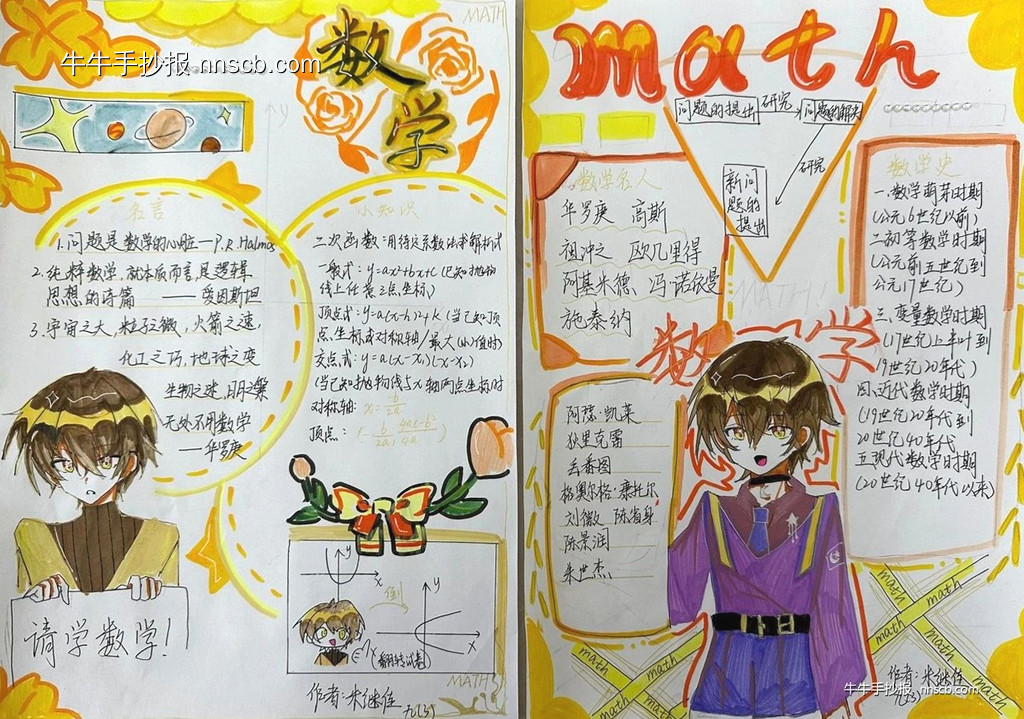 MATH
牛牛手抄报 nnscb.com
数学
名言
1.问题是数学的心脏—P.R.Halmos
2.纯粹数学，就本质而言，是逻辑
思想的诗篇 ——爱因斯坦
3.宇宙之大，粒子之微，火箭之速，
化工之巧，地球之变
生物之迷，日月之繁
无处不用数学
——华罗庚
请学数学！
小知识
二次函数：用待定系数法求解析式
一般式：y=ax²+bx+c（已知抛物
线上任意三点坐标）
顶点式：y=a(x-h)²+k（当已知顶
点坐标或对称轴/最大(小)值时）
交点式：y=a(x-x₁)(x-x₂)
（当已知抛物线与x轴两点坐标时
对称轴：x=-b/2a
顶点：（-b/2a，4ac-b²/4a）
y
x
倒
y
x
（翻转试卷）
作者：米继佳
九(3)
MATH
math
问题的提出
研究
问题的解决
研究
新问
题的
提出
数学名人
华罗庚 高斯
祖冲之 欧几里得
阿基米德 冯·诺依曼
施泰纳
MATH!
数学
阿瑟·凯莱
狄里克雷
丢番图
格奥尔格·康托尔
刘徽 陈省身
陈景润
朱世杰
数学史
一.数学萌芽时期
(公元6世纪以前)
二初等数学时期
(公元前五世纪到
公元17世纪)
三.变量数学时期
(17世纪上半叶到
19世纪20年代)
四.近代数学时期
(19世纪20年代到
20世纪40年代
五现代数学时期
(20世纪40年代以来)
math
math
math
math
math
math
作者：米继佳
九(3)
牛牛手抄报 nnscb.com